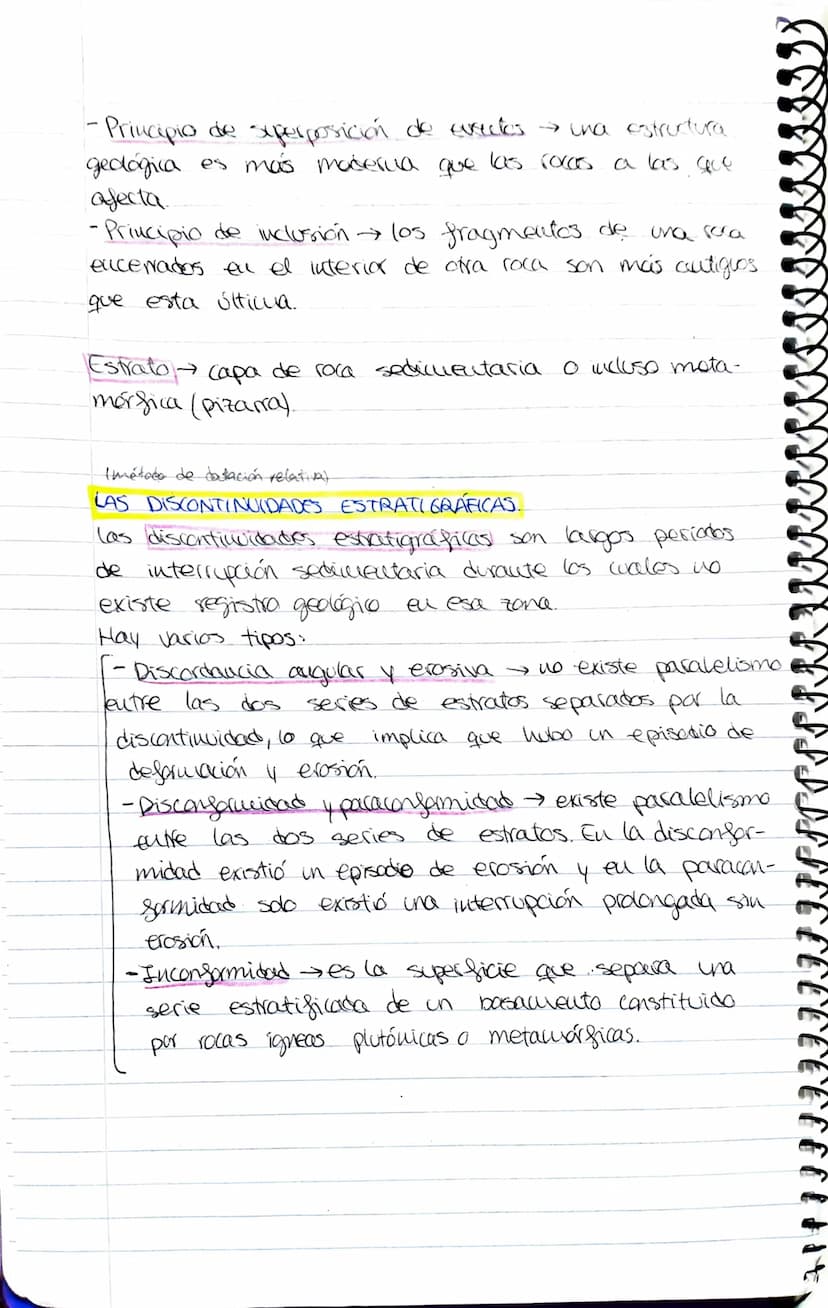 - Principio de superposición de eventos → una estructura
geológica es más moderna que las rocas a las que
afecta.
- Principio de inclusión → los fragmentos de una roca
encerrados en el interior de otra roca son más antiguos
que esta última.
Estrato → capa de roca sedimentaria o incluso meta-
mórfica (pizarra).
(método de datación relativa)
LAS DISCONTINUIDADES ESTRATIGRÁFICAS.
Las discontinuidades estratigráficas son largos periodos
de interrupción sedimentaria durante los cuales no
existe registro geológico en esa zona.
Hay varios tipos:
- Discordancia angular y erosiva → no existe paralelismo
entre las dos series de estratos separados por la
discontinuidad, lo que implica que hubo un episodio de
deformación y erosión.
- Disconformidad y paraconformidad → existe paralelismo
entre las dos series de estratos. En la disconfor-
midad existió un episodio de erosión y en la paracon-
formidad solo existió una interrupción prolongada sin
erosión.
- Inconformidad → es la superficie que separa una
serie estratificada de un basamento constituido
por rocas ígneas plutónicas o metamórficas.